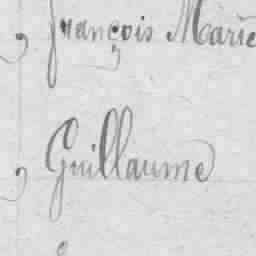 , François Marie
, Guillaume